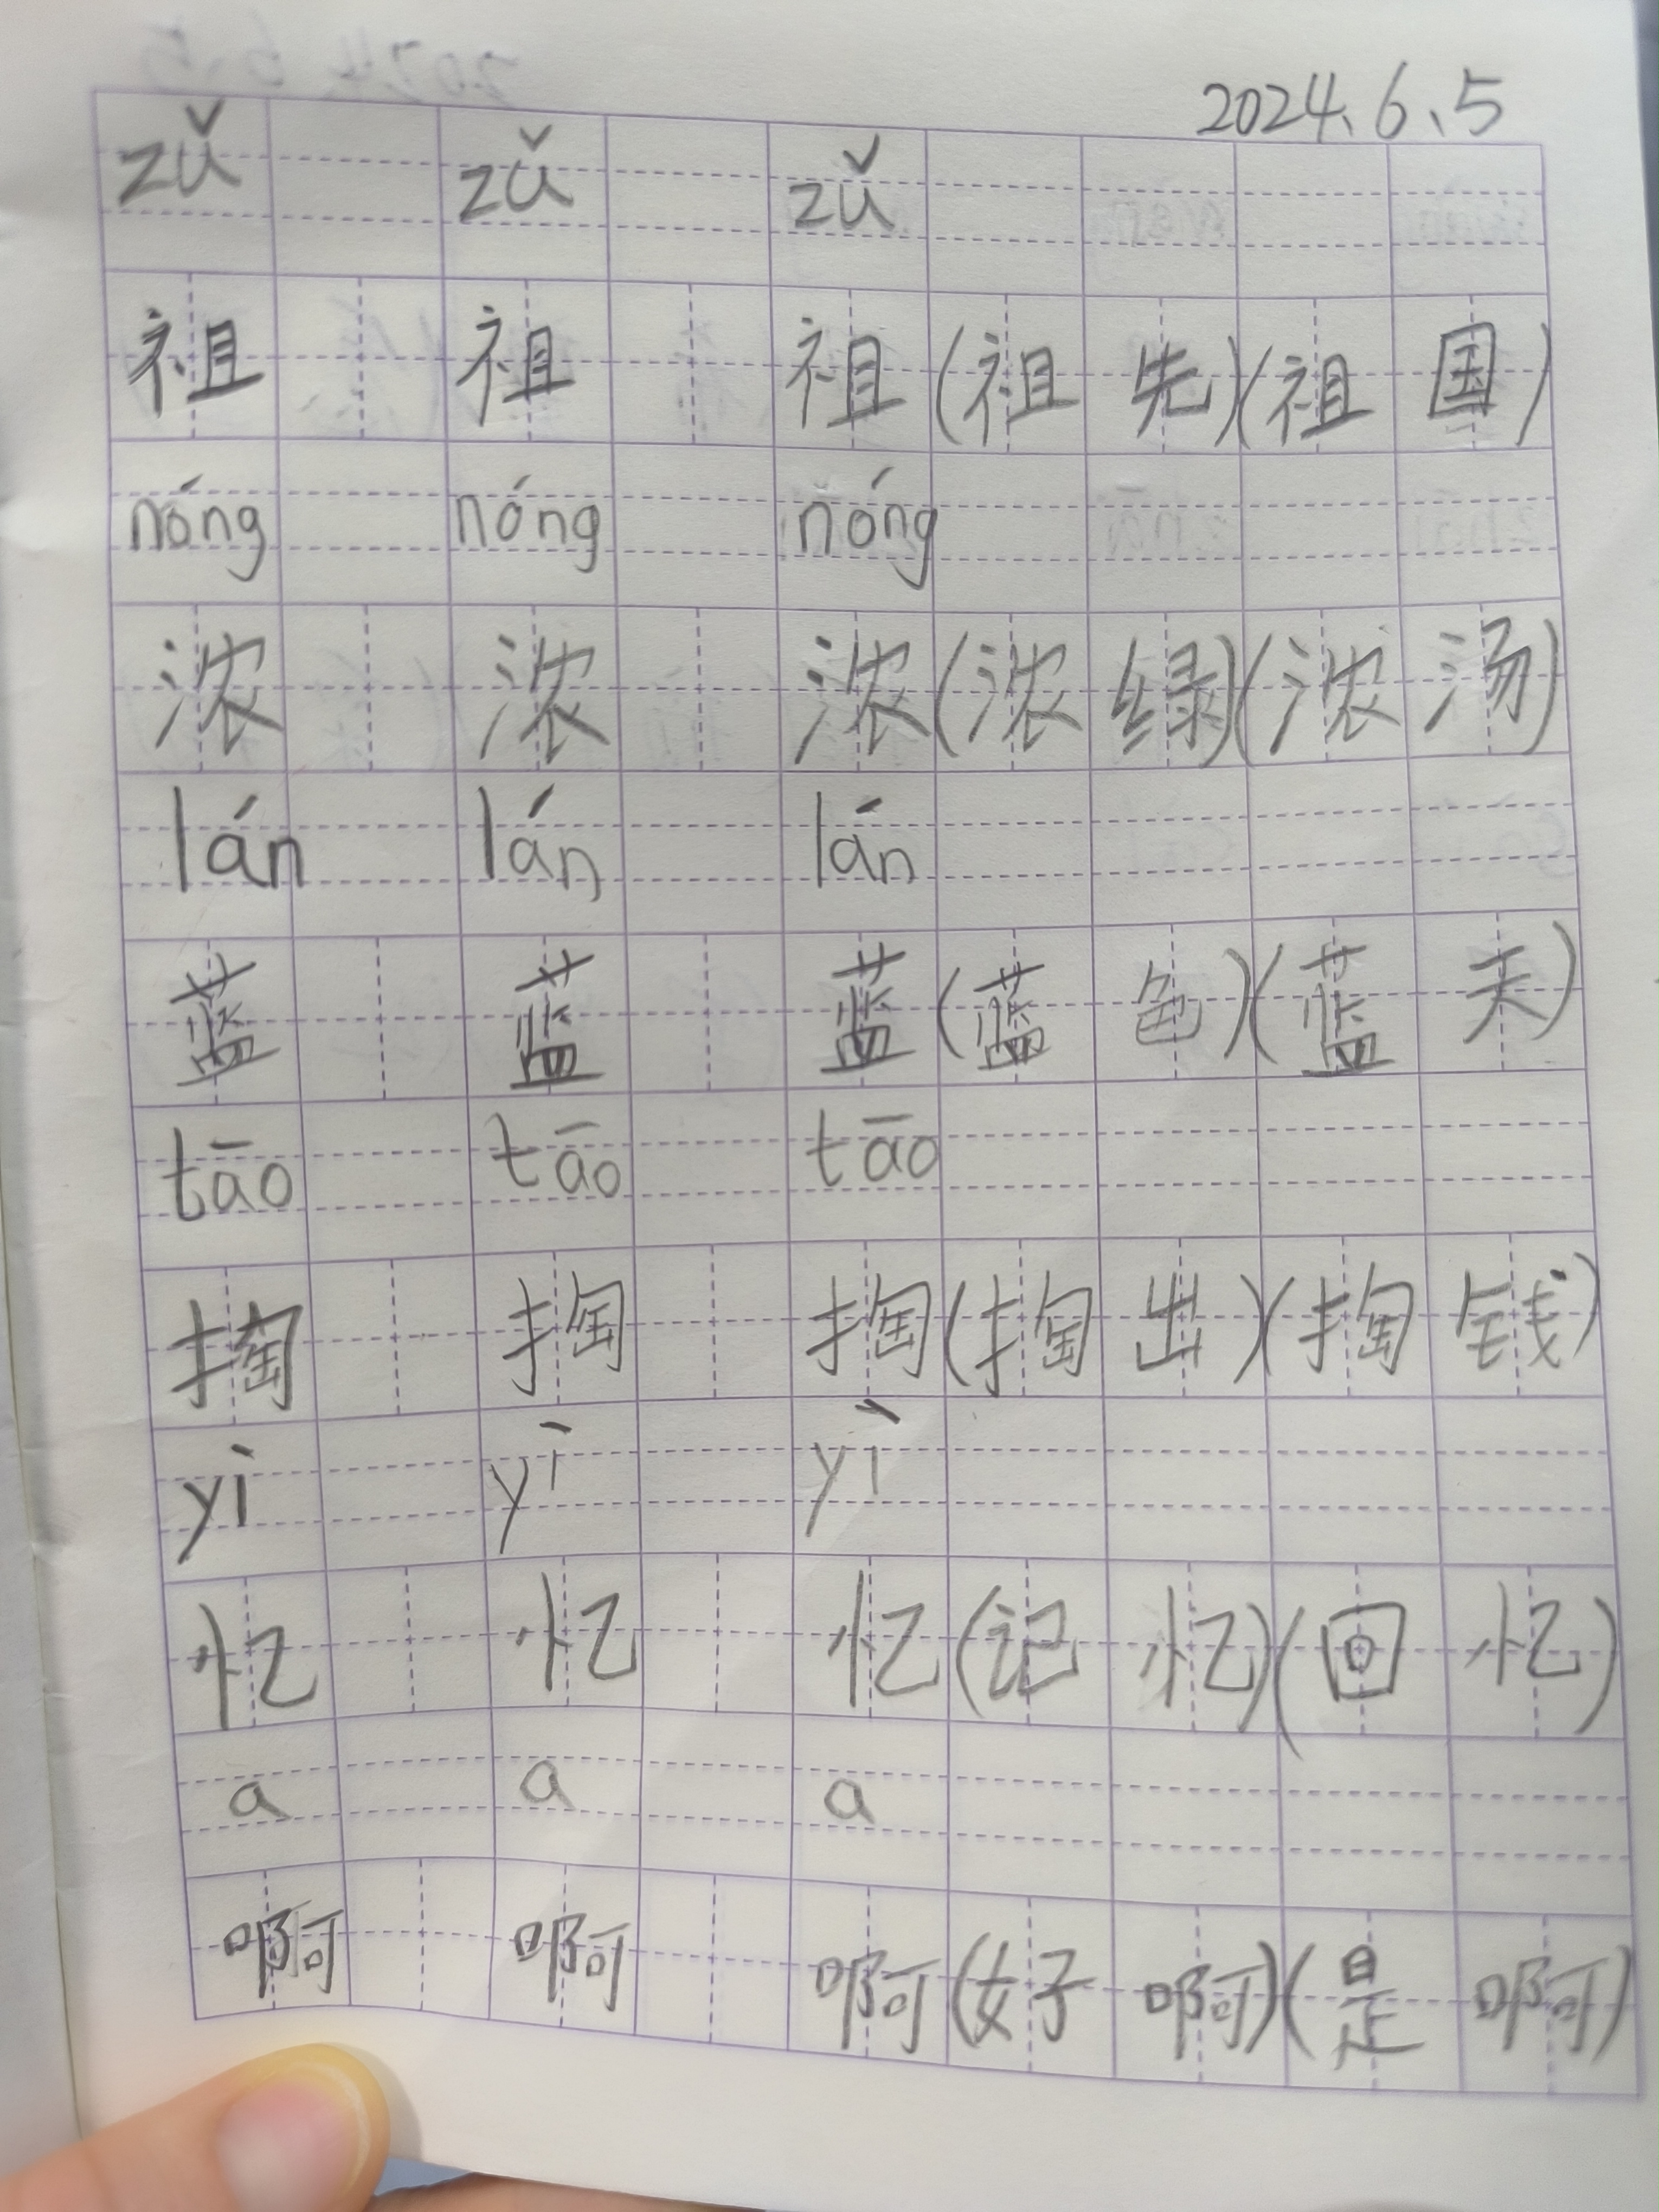 2024.6.5
zǔ zǔ zǔ
祖 祖 祖(祖先)(祖国)
nóng nóng nóng
浓 浓 浓(浓绿)(浓汤)
lán lán lán
蓝 蓝 蓝(蓝色)(蓝天)
tāo tāo tāo
掏 掏 掏(掏出)(掏钱)
yì yì yì
忆 忆 忆(记忆)(回忆)
a a a
啊 啊 啊(好啊)(是啊)